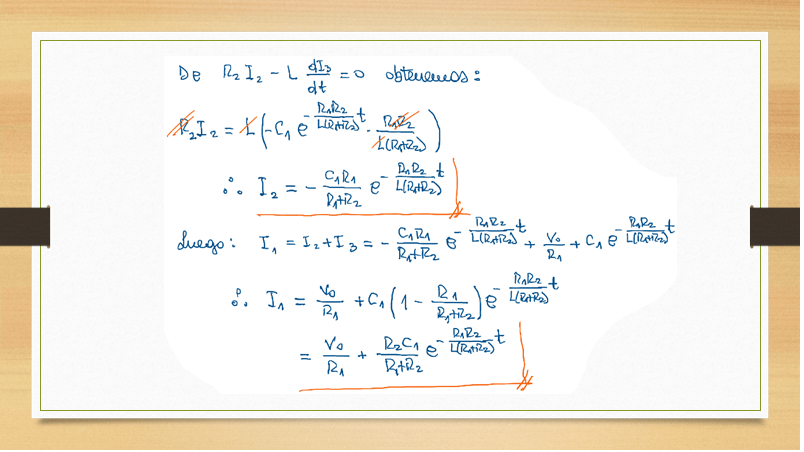 De R₂I₂ - L dI₃/dt = 0 obtenemos:
R₂I₂ = L(-C₁ e^(-R₁R₂/L(R₁+R₂) t) · R₁R₂/L(R₁+R₂))
∴ I₂ = - C₁R₁/R₁+R₂ e^(-R₁R₂/L(R₁+R₂) t)
Luego: I₁ = I₂+I₃ = - C₁R₁/R₁+R₂ e^(-R₁R₂/L(R₁+R₂) t) + V₀/R₁ + C₁ e^(-R₁R₂/L(R₁+R₂) t)
∴ I₁ = V₀/R₁ + C₁(1 - R₁/R₁+R₂) e^(-R₁R₂/L(R₁+R₂) t)
= V₀/R₁ + R₂C₁/R₁+R₂ e^(-R₁R₂/L(R₁+R₂) t)